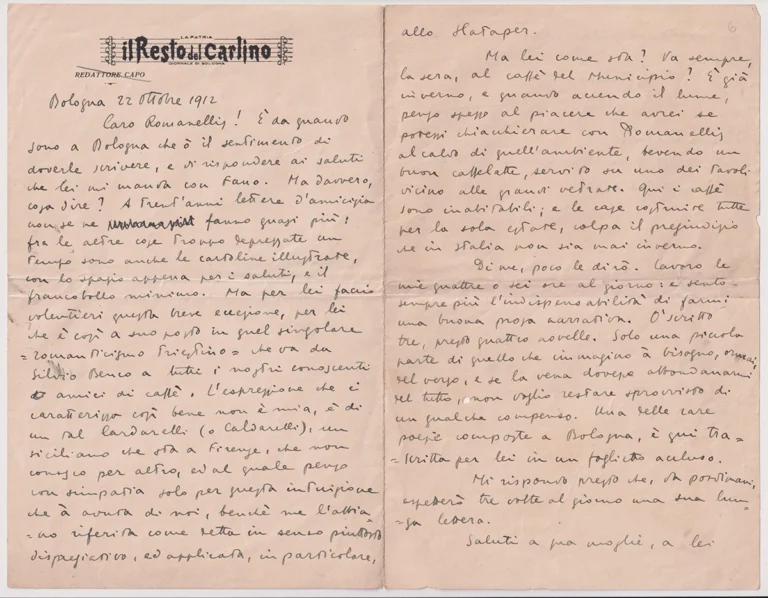 LA PATRIA
il Resto del Carlino
GIORNALE DI BOLOGNA
REDATTORE CAPO
Bologna 22 ottobre 1912
Caro Romanellis! È da quando
sono a Bologna che ò il sentimento di
doverle scrivere, e di rispondere ai saluti
che lei mi manda con Fano. Ma davvero,
cosa dire? A trent'anni lettere d'amicizia
non se ne fanno quasi più;
fra le altre cose troppo deprezzate un
tempo sono anche le cartoline illustrate,
con lo spazio appena per i saluti, e il
francobollo minimo. Ma per lei faccio
volentieri questa breve eccezione, per lei
che è così a suo posto in quel singolare
=romanticismo triestino= che va da
Silvio Benco a tutti i nostri conoscenti
amici di caffè. L'espressione che ci
caratterizza così bene non è mia, è di
un tal Cardarelli (o Caldarelli), un
siciliano che sta a Firenze, che non
conosco per altro, ed al quale penso
con simpatia solo per questa intuizione
che à avuta di noi, benchè me l'abbia=
=no riferita come detta in senso piuttosto
dispregiativo, ed applicata, in particolare,
6
allo Stataper.
Ma lei come sta? Va sempre,
la sera, al caffè del Municipio? È già
inverno, e quando accendo il lume,
penso spesso al piacere che avrei se
potessi chiacchierare con Romanellis
al caldo di quell'ambiente, bevendo un
buon caffelatte, servito su uno dei tavoli
vicino alle grandi vetrate. Qui i caffè
sono inabitabili; e le case costruite tutte
per la sola estate, colpa il pregiudizio
che in Italia non sia mai inverno.
Di me, poco le dirò. Lavoro le
mie quattro o sei ore al giorno: e sento
sempre più l'indispensabilità di farmi
una buona prosa narrativa. Ò scritto
tre, presto quattro novelle. Solo una piccola
parte di quello che immagino à bisogno, ormai,
del verso, e se la vena dovesse abbandonarmi
del tutto, non voglio restare sprovvisto di
un qualche compenso. Una delle rare
poesie composte a Bologna, è qui tra=
=scritta per lei in un foglietto accluso.
Mi risponda presto che, da posdomani,
aspetterò tre volte al giorno una sua lun=
=ga lettera.
Saluti a sua moglie, a lei